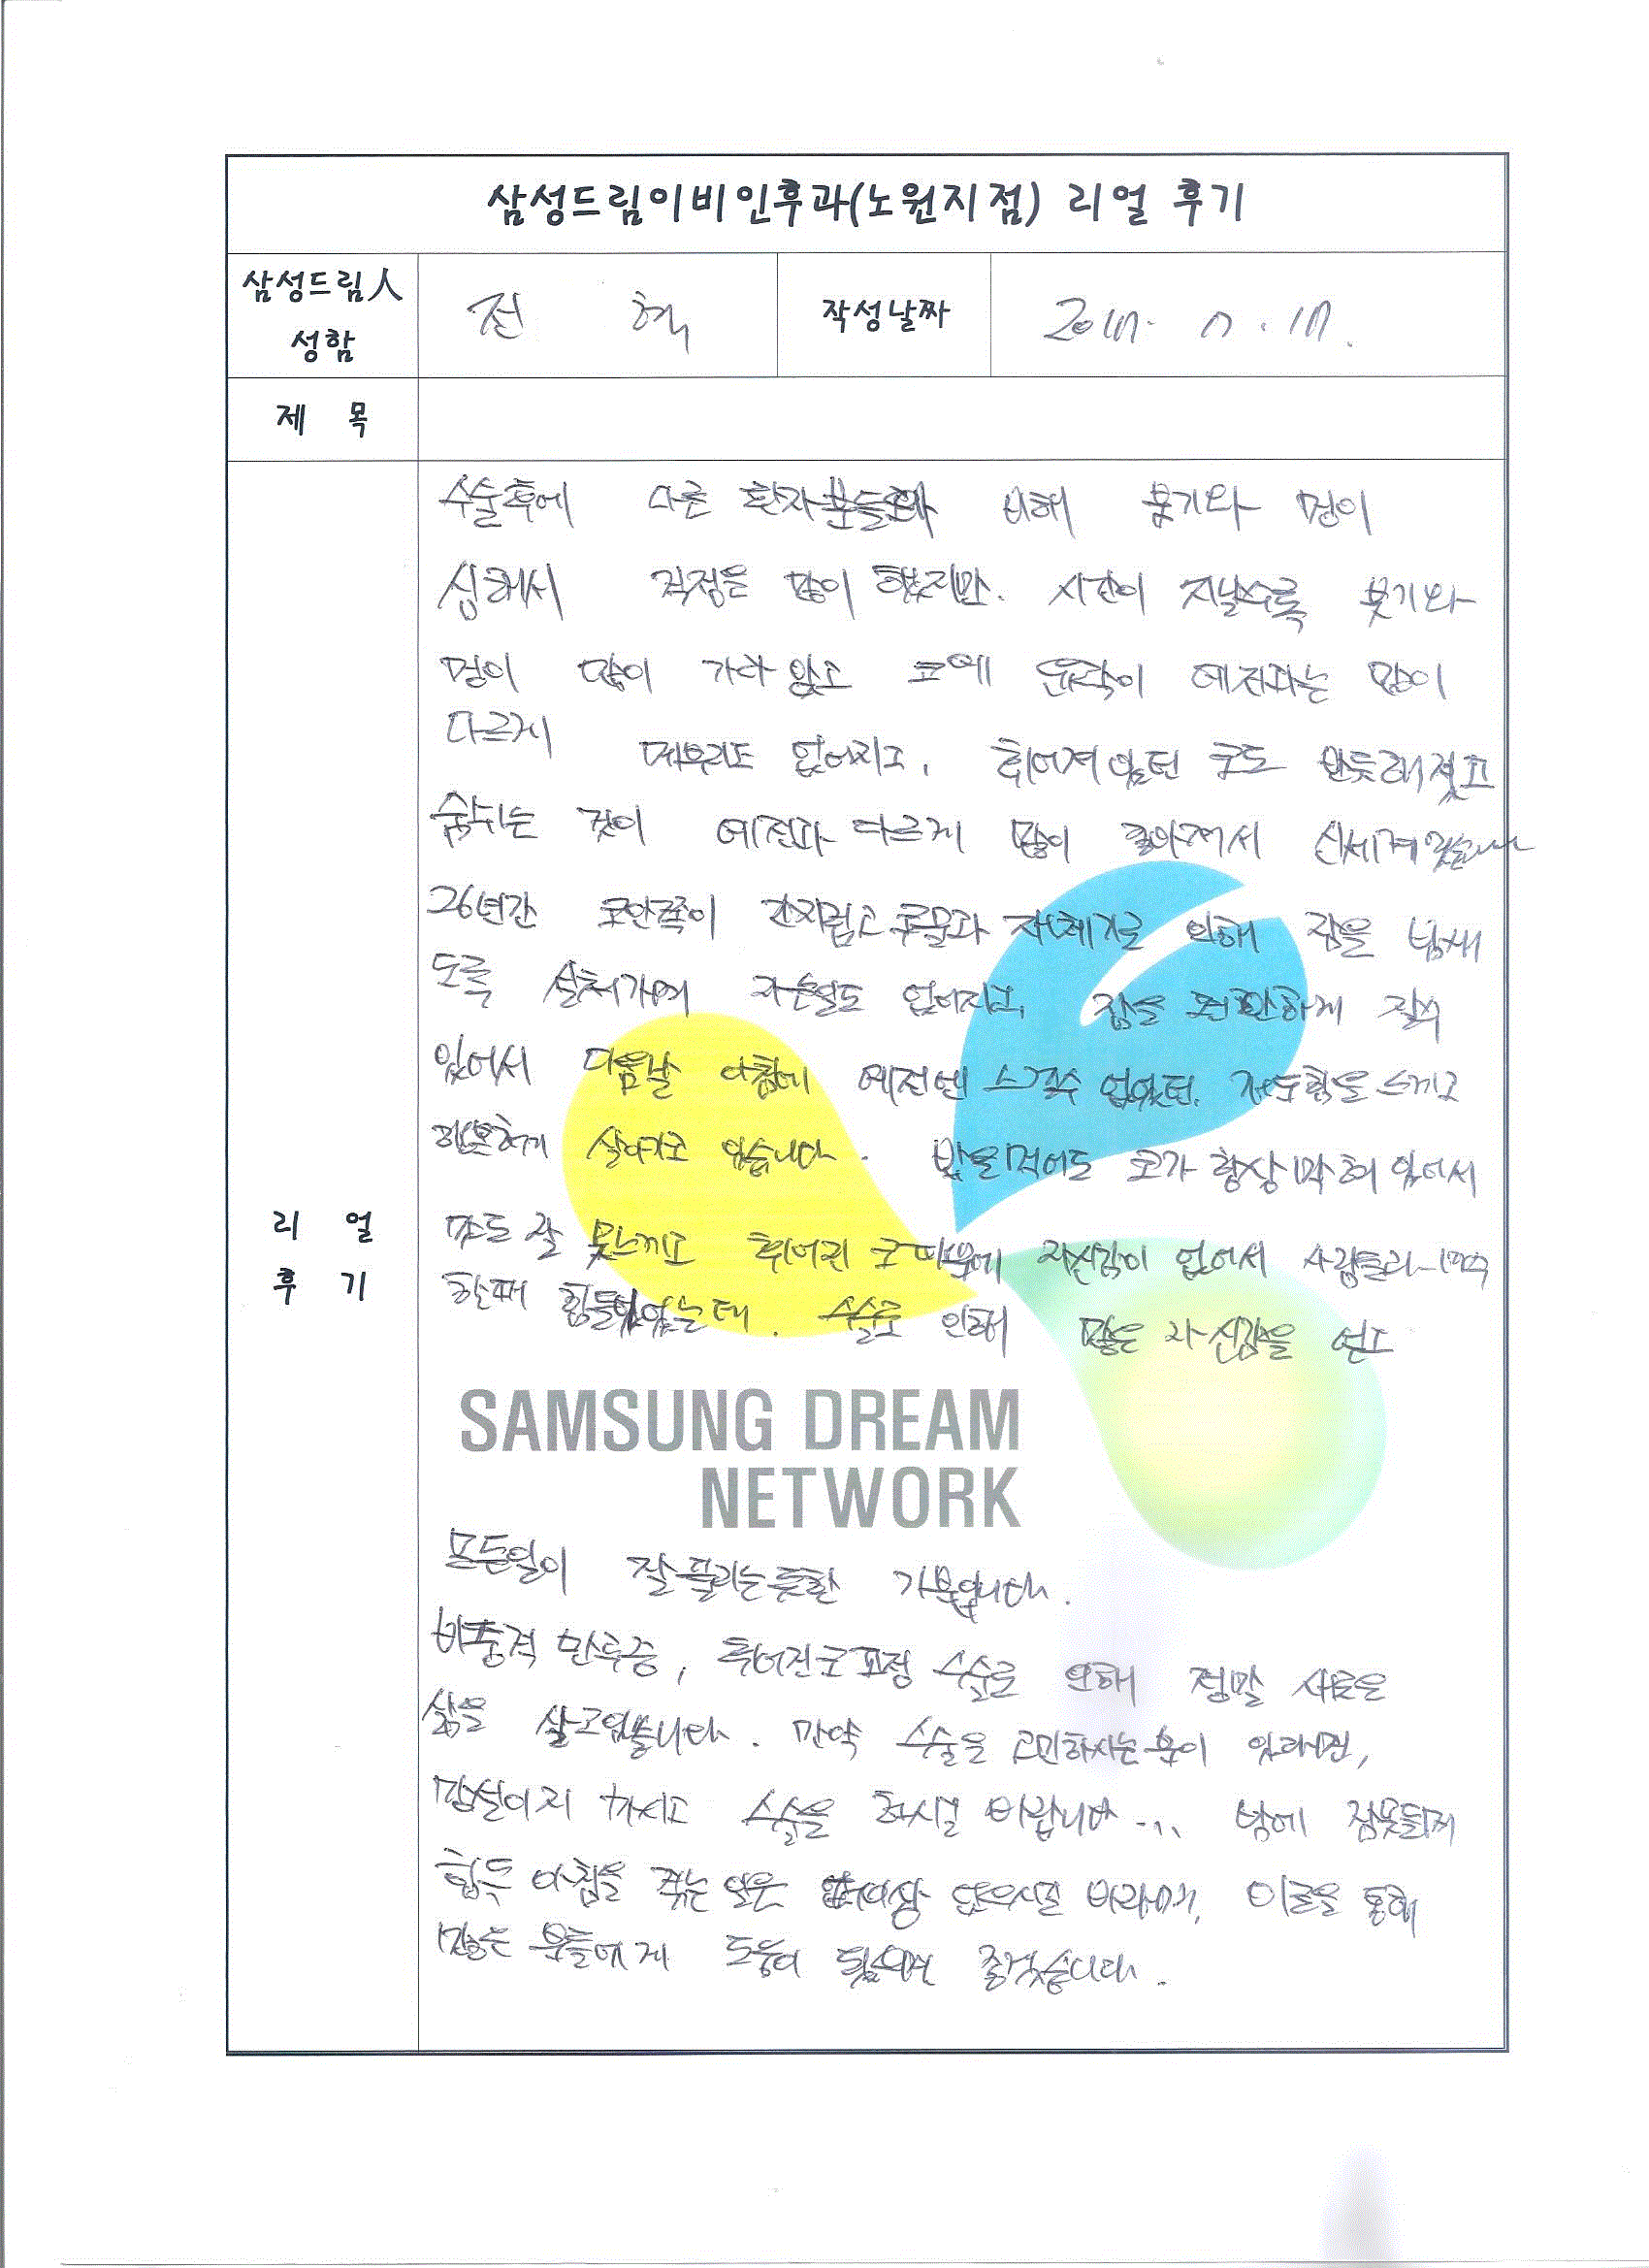 삼성드림이비인후과(노원지점) 리얼 후기
삼성드림人
성함
전 혁
작성날짜
2017. 7. 17.
제 목
수술후에 다른 환자분들과 비해 붓기와 멍이
심해서 걱정을 많이 했지만. 시간이 지날수록 붓기와
멍이 많이 가라 앉고 코에 윤곽이 예전과는 많이
다르게 매부리도 없어지고, 휘어져있던 코도 반듯해졌고
숨쉬는 것이 예전과 다르게 많이 좋아져서 신세계 같습니다
26년간 코안쪽이 간지럽고 콧물과 재채기로 인해 잠을 밤새
도록 설쳐가며 자는일도 없어지고, 잠을 편안하게 잘수
있어서 다음날 아침에 예전엔 느낄수 없었던. 개운함을 느끼고
행복하게 살아가고 있습니다. 밥을먹어도 코가 항상 막혀 있어서
맛도 잘 못느끼고 휘어진 코 때문에 자신감이 없어서 사람들과
할때 힘들었었는데. 수술로 인해 많은 자신감을 얻고
SAMSUNG DREAM
NETWORK
리 얼
후 기
모든일이 잘 풀리는듯한 기분입니다.
비중격 만곡증, 휘어진코교정 수술로 인해 정말 새로운
삶을 살고있습니다. 만약 수술을 고민하시는분이 있다면,
망설이지 마시고 수술을 하시길 바랍니다... 밤에 잠못들며
힘든 아침을 겪는 일은 더이상 없으시길 바라며, 이글을 통해
많은 분들에게 도움이 됐으면 좋겠습니다.